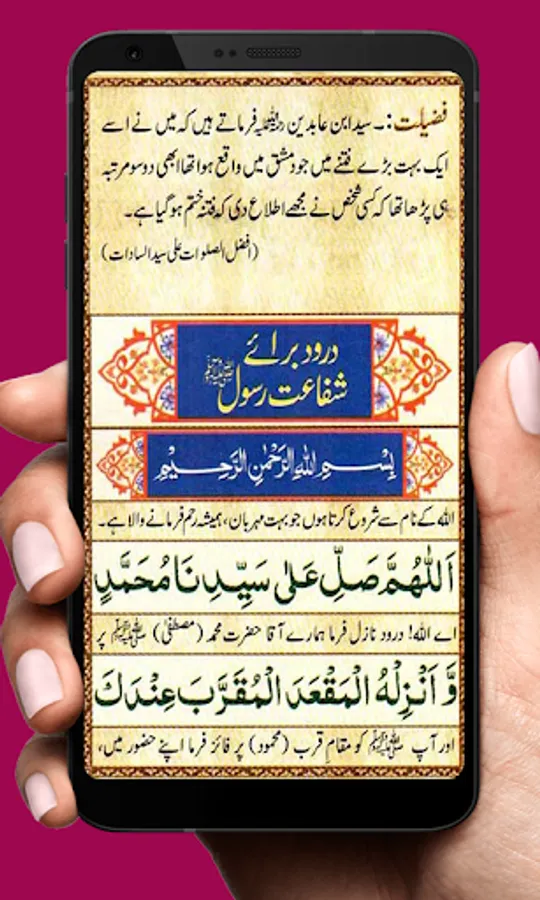 فضیلت :۔ سید ابن عابدین رحمۃ اللہ علیہ فرماتے ہیں کہ میں نے اسے
ایک بہت بڑے فتنے میں جو دمشق میں واقع ہوا تھا ابھی دو سو مرتبہ
ہی پڑھا تھا کہ کسی شخص نے مجھے اطلاع دی کہ فتنہ ختم ہو گیا ہے۔
(افضل الصلوات علی سید السادات)
درود برائے
شفاعت رسول ﷺ
بِسْمِ اللهِ الرَّحْمٰنِ الرَّحِيْمِ
اللہ کے نام سے شروع کرتا ہوں جو بہت مہربان، ہمیشہ رحم فرمانے والا ہے۔
اَللّٰهُمَّ صَلِّ عَلٰى سَيِّدِنَا مُحَمَّدٍ
اے اللہ! درود نازل فرما ہمارے آقا حضرت محمد (مصطفیٰ) ﷺ پر
وَّ اَنْزِلْهُ الْمَقْعَدَ الْمُقَرَّبَ عِنْدَكَ
اور آپ ﷺ کو مقامِ قرب (محمود) پر فائز فرما اپنے حضور میں،